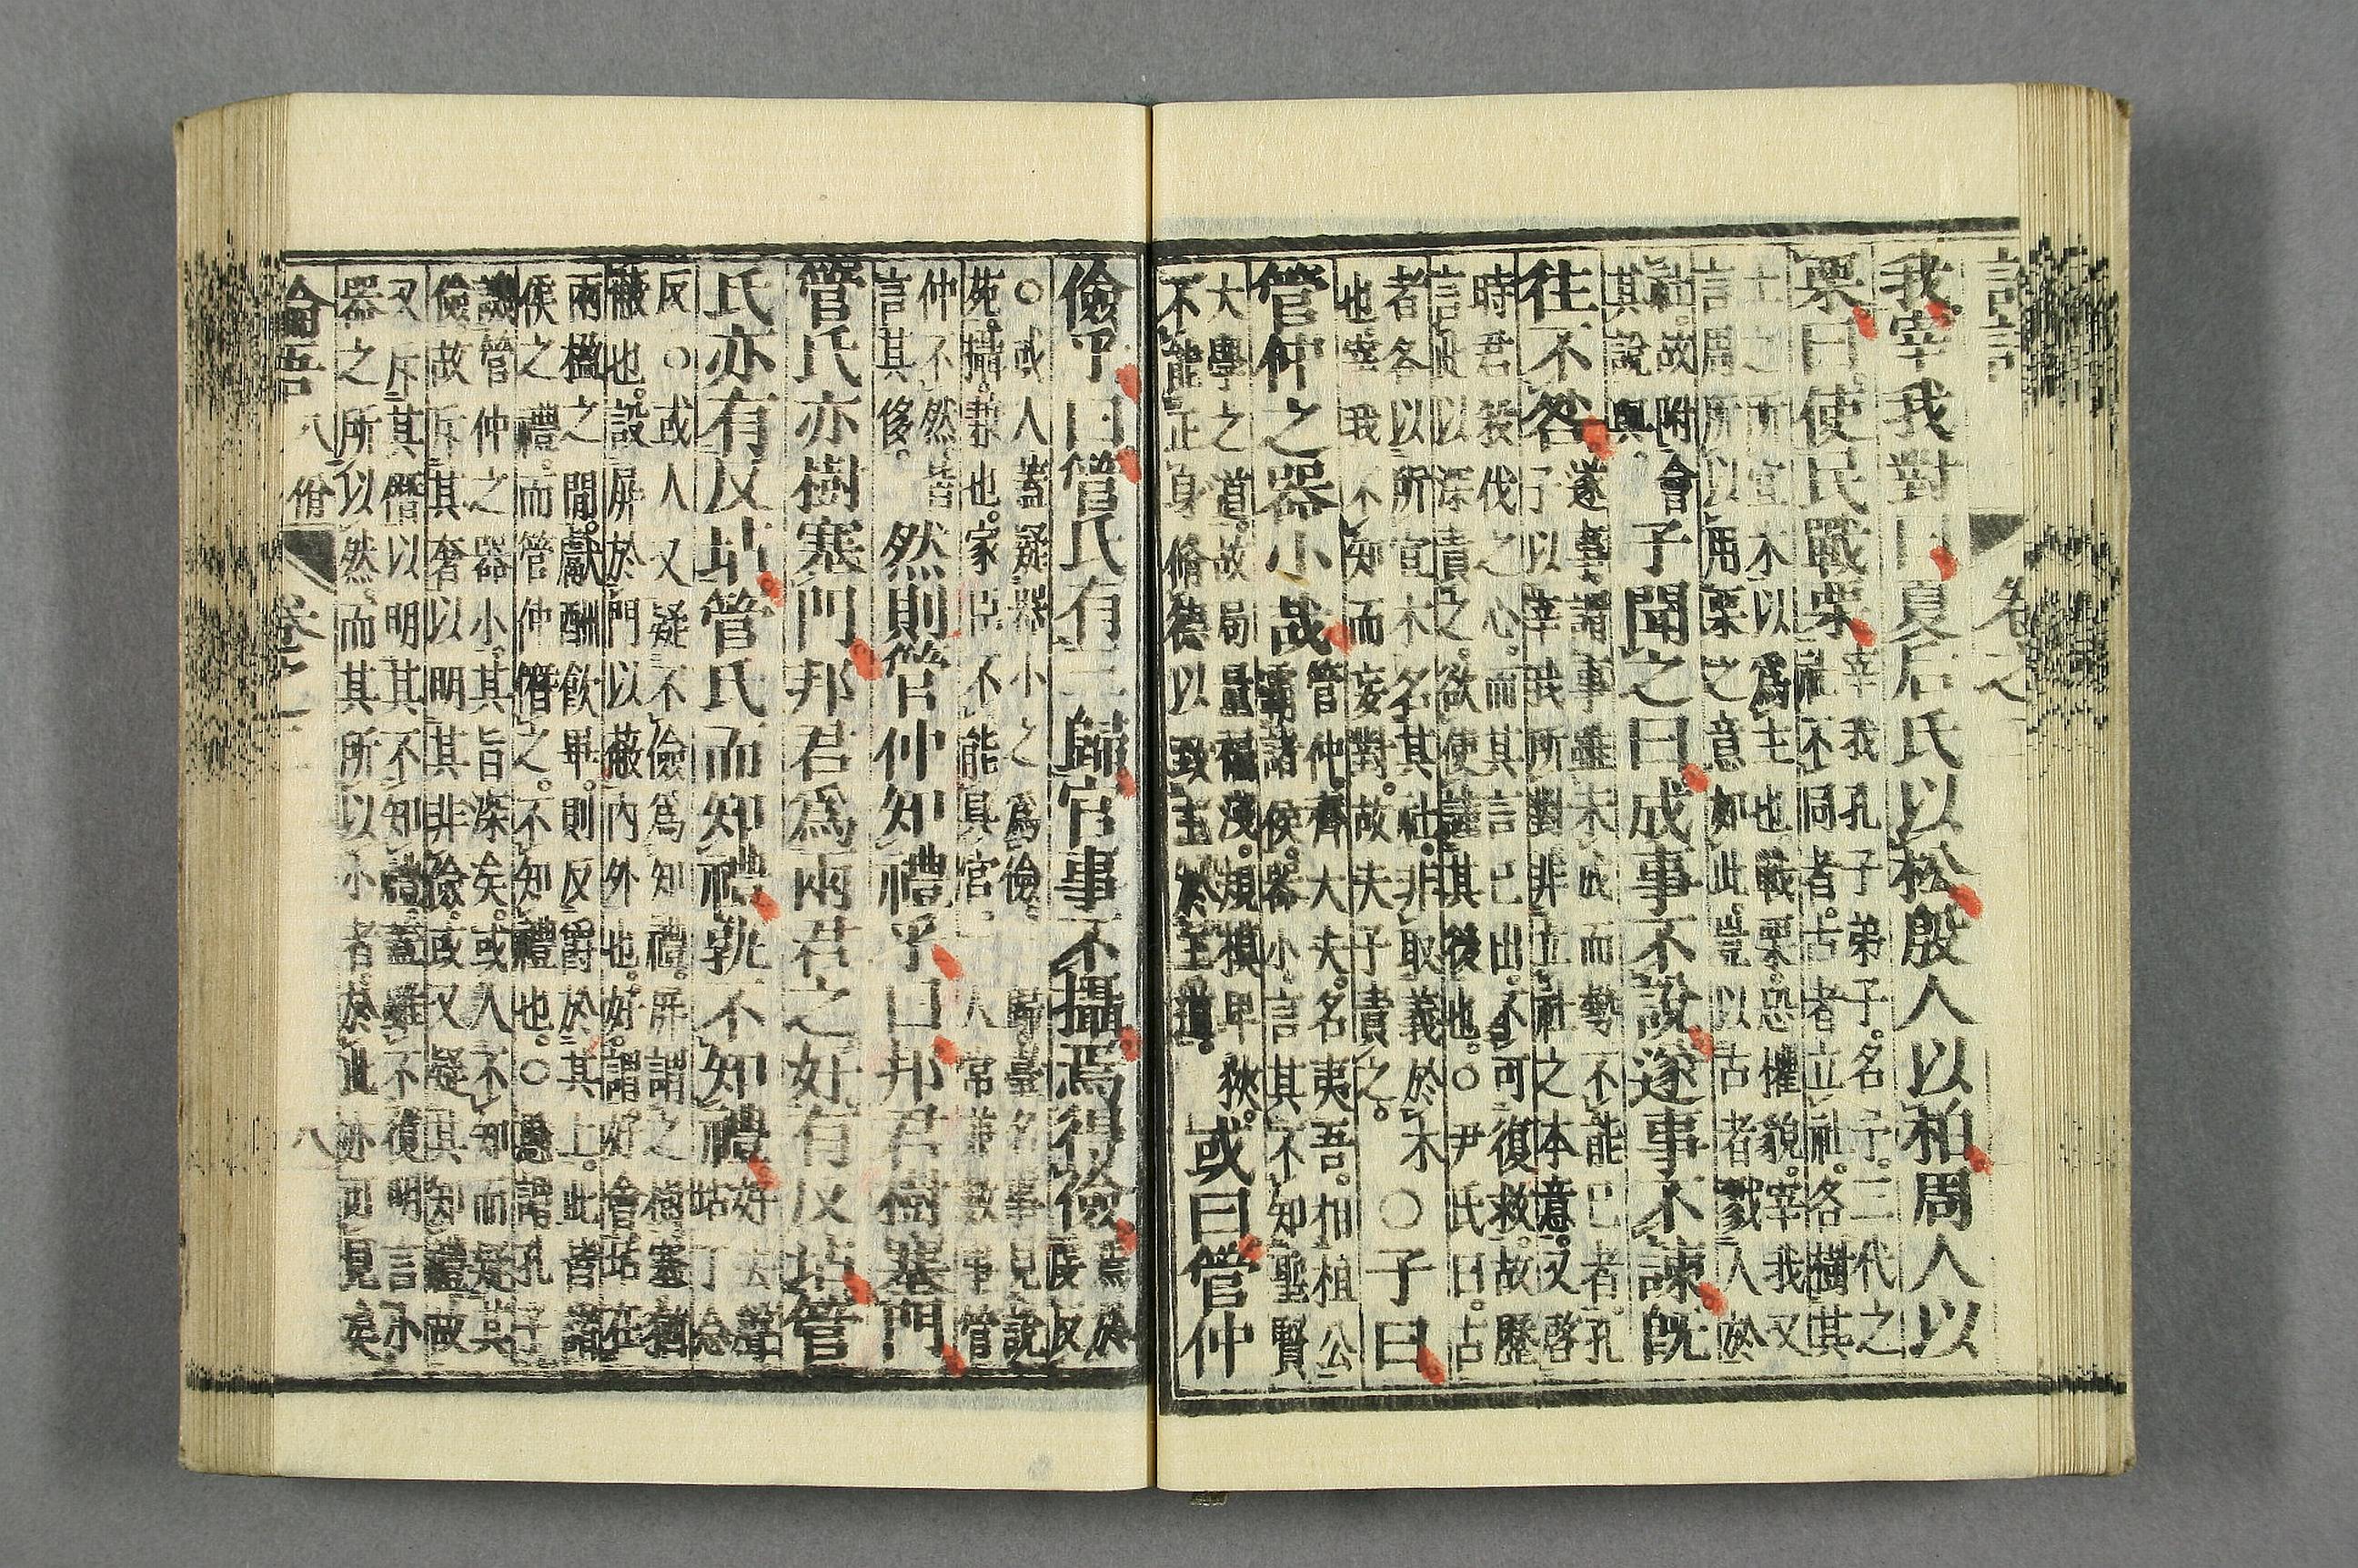 我。宰我對曰夏后氏以松殷人以柏周人以
栗曰。使民戰栗
宰我孔子弟子。名予。三代之
社不同者。古者立社。各樹其
土之所宜木以爲主也。戰栗。恐懼貌。宰我又
言周所以用栗之意如此。豈以古者戮人於
社。故附會
其說與。
子聞之曰成事不說遂事不諫既
往不咎
遂事。謂事雖未成而勢不能已者。孔
子以宰我所對非立社之本意。又啓
時君殺伐之心。而其言已出。不可復救。故歷
言此以深責之。欲使謹其後也。○尹氏曰。古
者各以所宜木名其社。非取義於木
也。宰我不知而妄對。故夫子責之。
○子曰
管仲之器小哉
管仲。齊大夫。名夷吾。相桓公
霸諸侯。器小。言其不知聖賢
大學之道。故局量褊淺。規模卑狹。
不能正身脩德以致主於王道。
或曰管仲
儉乎曰管氏有三歸官事不攝焉得儉
焉於
虔反
○或人蓋疑器小之爲儉。三歸臺名。事見說
苑。攝。兼也。家臣不能具官。一人常兼數事。管
仲不然。皆
言其侈。
然則管仲知禮乎曰邦君樹塞門
管氏亦樹塞門邦君爲兩君之好有反坫管
氏亦有反坫管氏而知禮孰不知禮
好去聲
坫丁念
反。○或人又疑不儉爲知禮。屏謂之樹塞猶
蔽也。設屏於門以蔽內外也。好。謂好會坫在
兩楹之間。獻酬飲畢。則反爵於其上。此皆諸
侯之禮。而管仲僭之。不知禮也。○愚謂孔子
譏管仲之器小。其旨深矣。或人不知而疑其
儉故斥其奢以明其非儉。或又疑其知禮故
又斥其僭以明其不知禮。蓋雖不復明言小
器之所以然。而其所以小者。於此亦可見矣
論語 八佾 卷之二 八